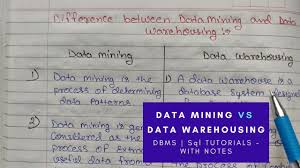 Difference between Data mining and Data
Warehousing :-
Data mining
Data Warehousing
1) Data mining is the
process of determining
data patterns.
2) Data mining is gen
Considered as the
process of
useful data from
1) A data warehouse is a
database system designed
DATA MINING VS
DATA WAREHOUSING
DBMS | Sql TUTORIALS -
WITH NOTES